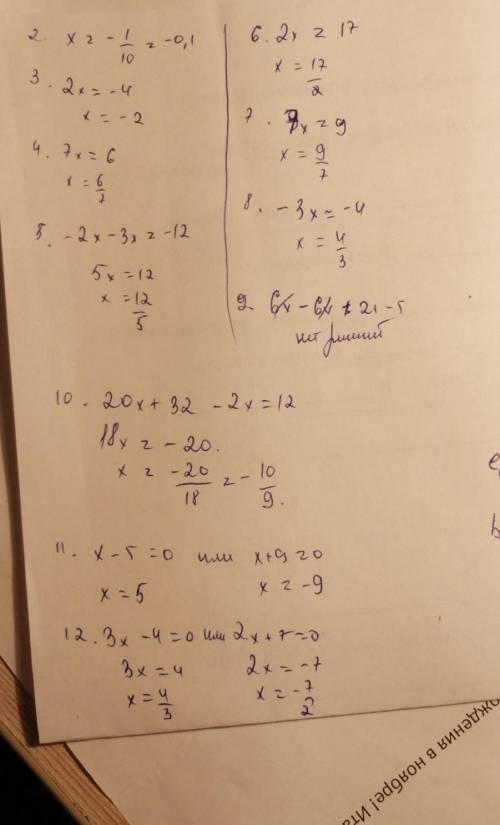 2. x = -1/10 = -0,1
3. 2x = -4
x = -2
4. 7x = 6
x = 6/7
5. -2x - 3x = -12
5x = 12
x = 12/5
6. 2x = 17
x = 17/2
7. 7x = 9
x = 9/7
8. -3x = -4
x = 4/3
9 6x - 6x ≠ 21 - 5
нет решений
10. 20x + 32 - 2x = 12
18x = -20.
x = -20/18 = -10/9.
11. x - 5 = 0 или x + 9 = 0
x = 5 x = -9
12. 3x - 4 = 0 или 2x + 7 = 0
3x = 4 2x = -7
x = 4/3 x = -7/2
ождения в ноябре! Ита